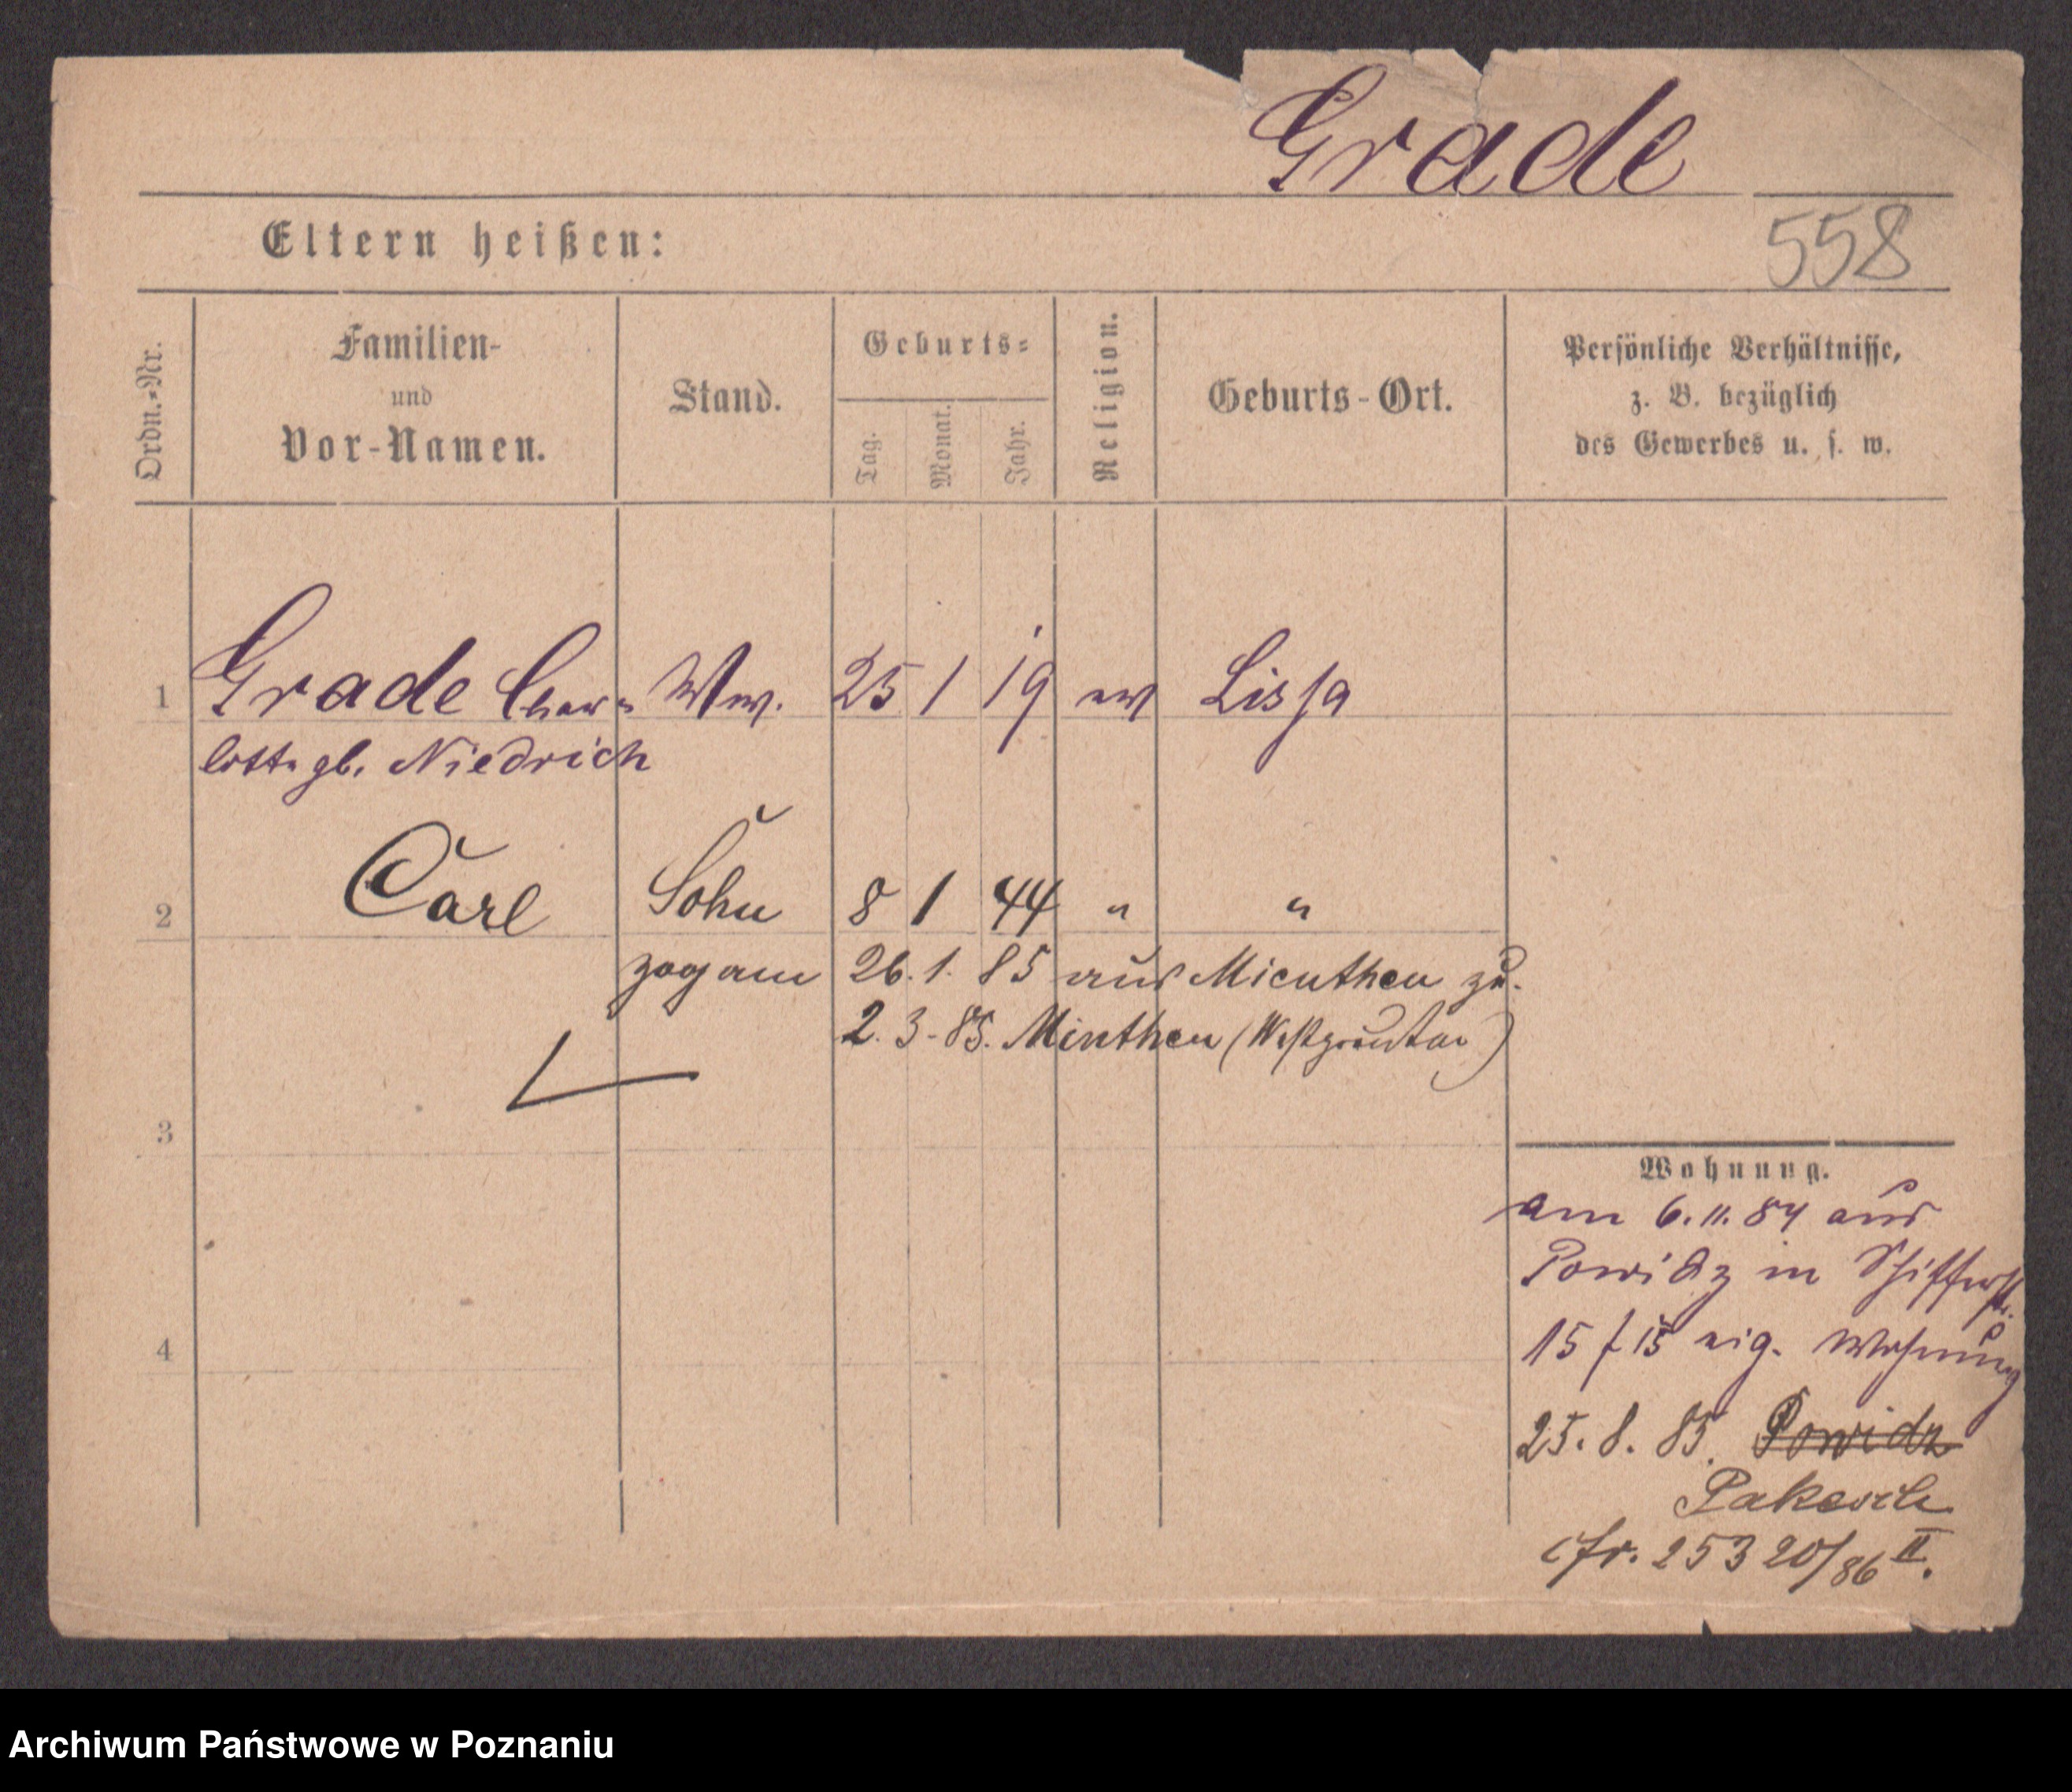 Grade
Eltern heißen:
558
Ordn.-Nr.
Familien-
und
Vor-Namen.
Stand.
Geburts-
Tag.
Monat.
Jahr.
Religion.
Geburts-Ort.
Persönliche Verhältnisse,
z. B. bezüglich
des Gewerbes u. s. w.
1 Grade Char- Ww. 25 1 19 ev Lissa
lotte gb. Niedrich
2 Carl Sohn 8 1 44 " "
zog am 26. 1. 85 aus Micuthen zu.
2. 3. 85. Minthen
3
4
Wohnung.
am 6. 11. 84 aus
Powidz in Schifferstr.
15 f 15 eig. Wohnung
25. 8. 85. Powidz
Pakosch
cfr. 253 20/86 II.
Archiwum Państwowe w Poznaniu